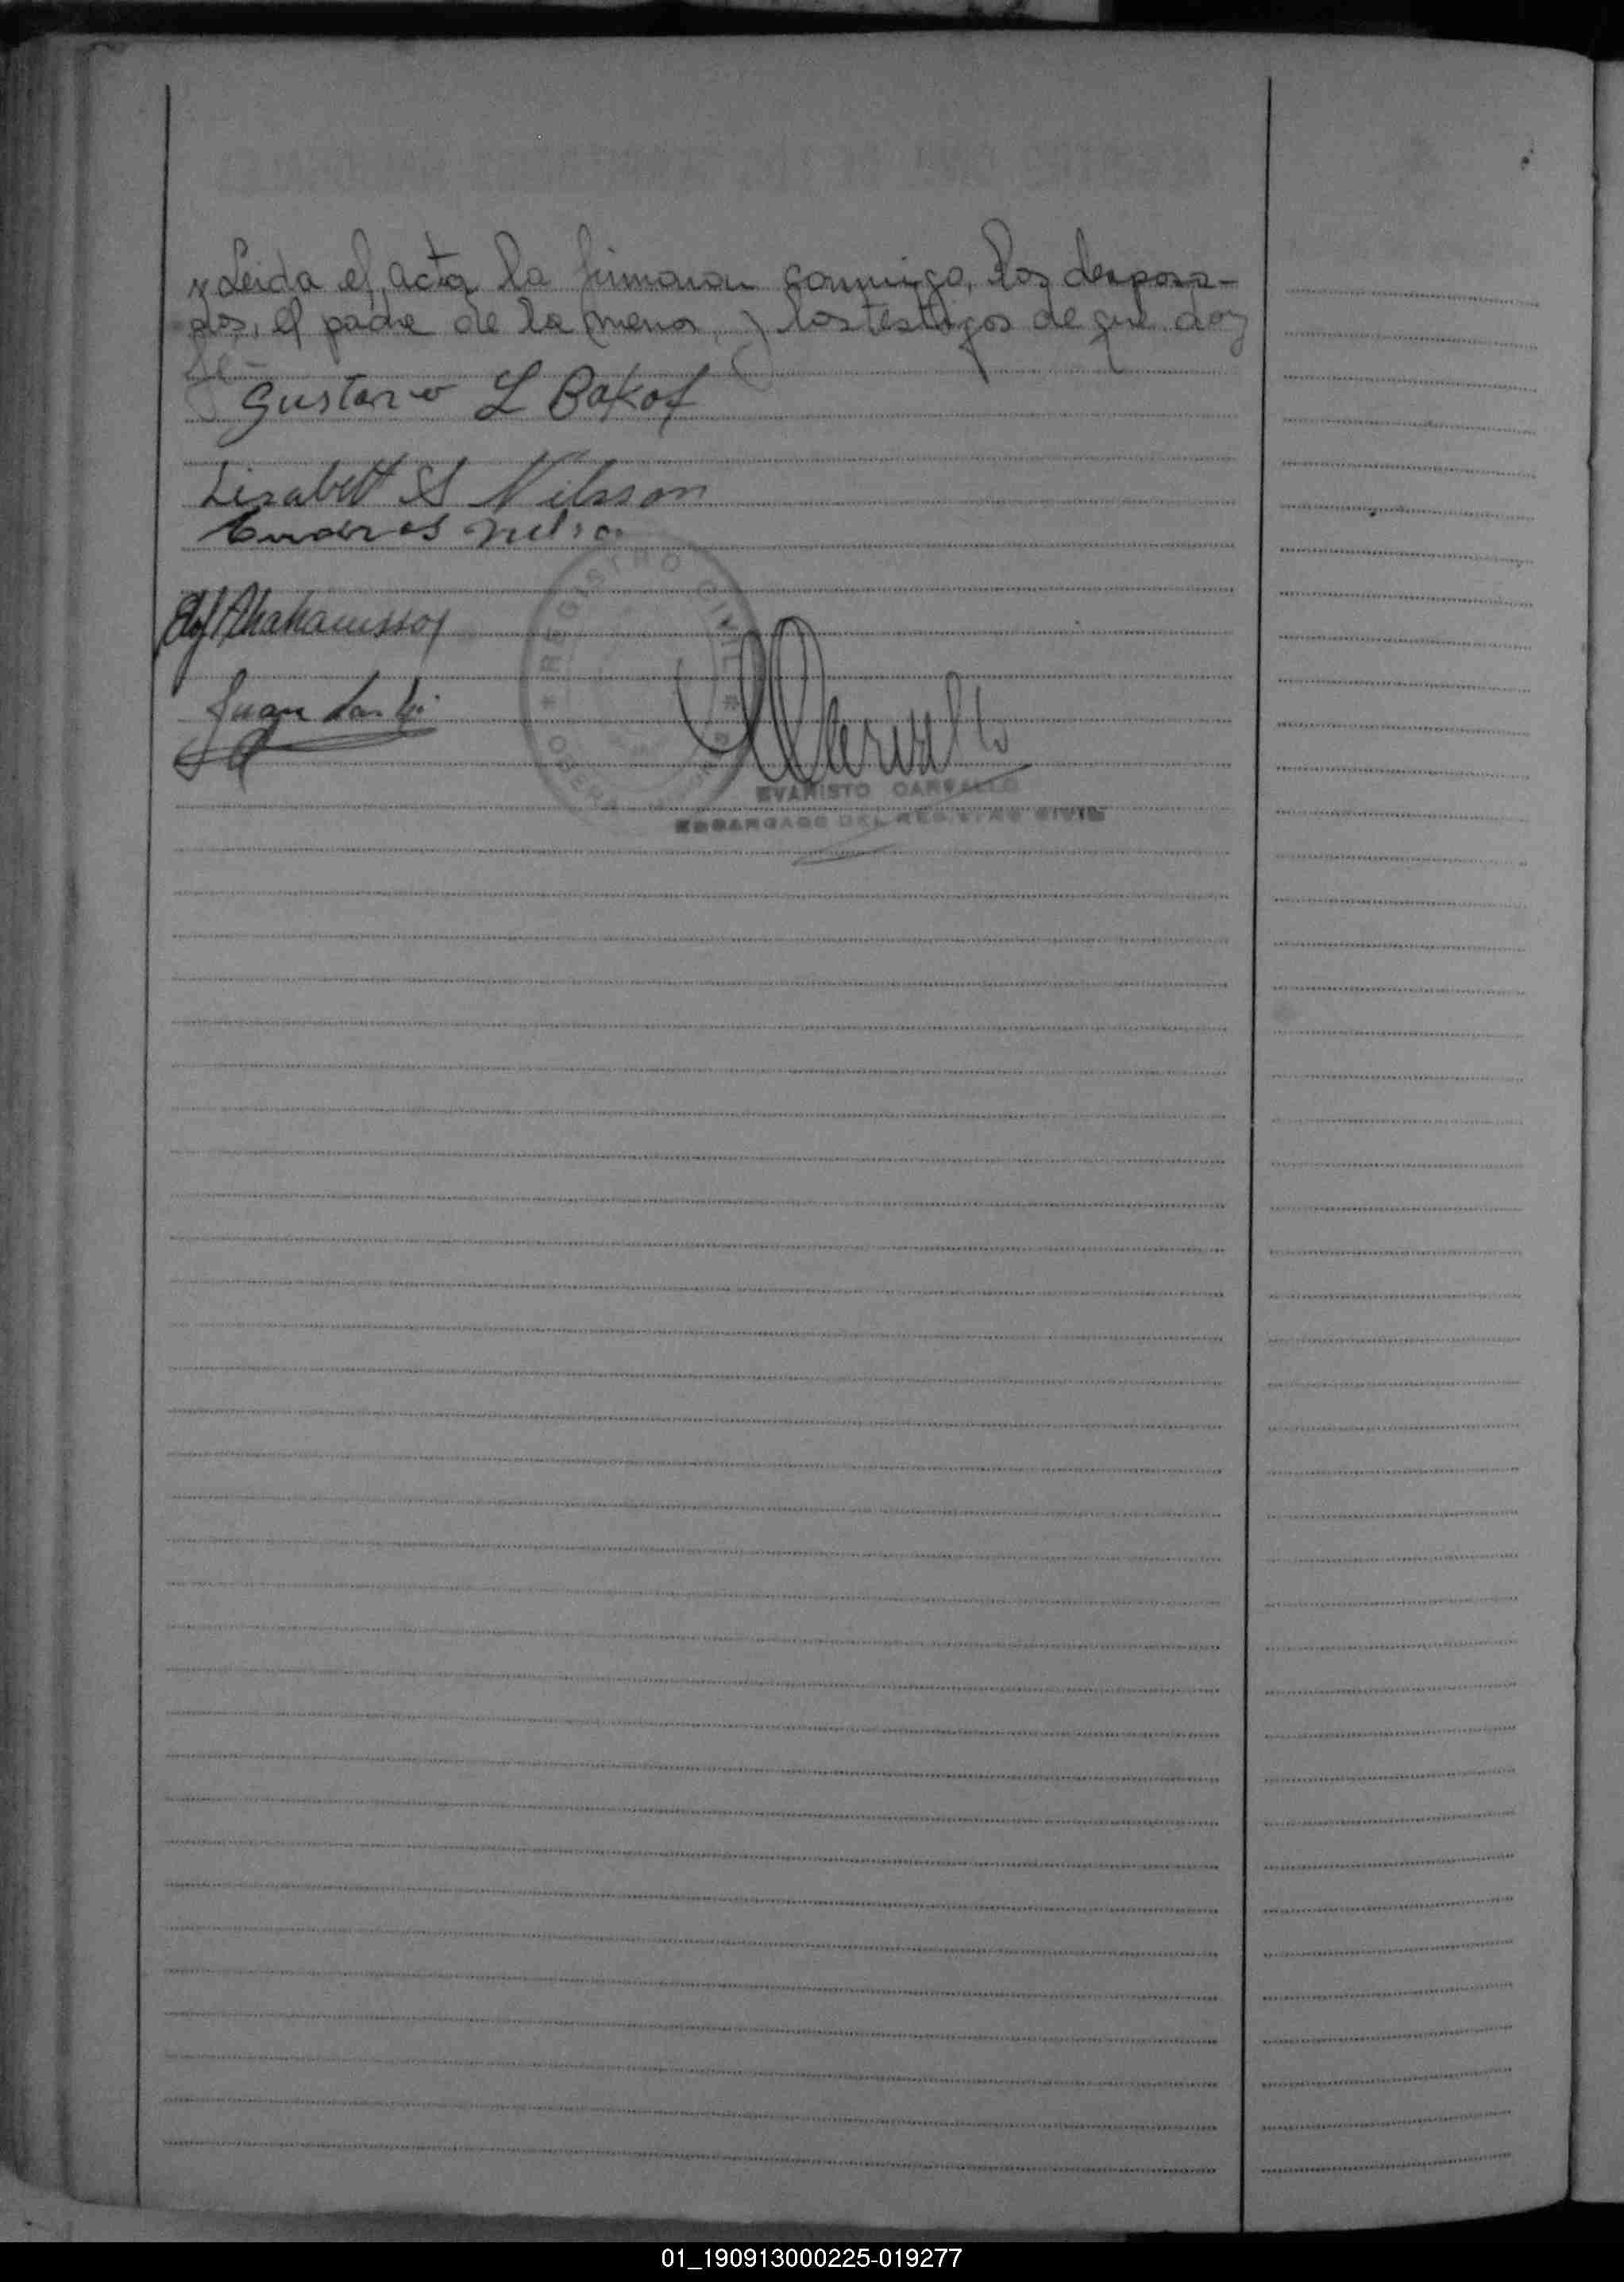 y Leida el acta la firmaron conmigo, los desposa-
dos, el padre de la menor, y los testigos de que doy
fe-
Gustavo L Bakof
Lisabett S Nilsson
Anderes Nelson
Olof Abrahamsson
Juan
REGISTRO CIVIL
OBERA MISIONES
EVARISTO CARVALLO
ENCARGADO DEL REGISTRO CIVIL
01_190913000225-019277